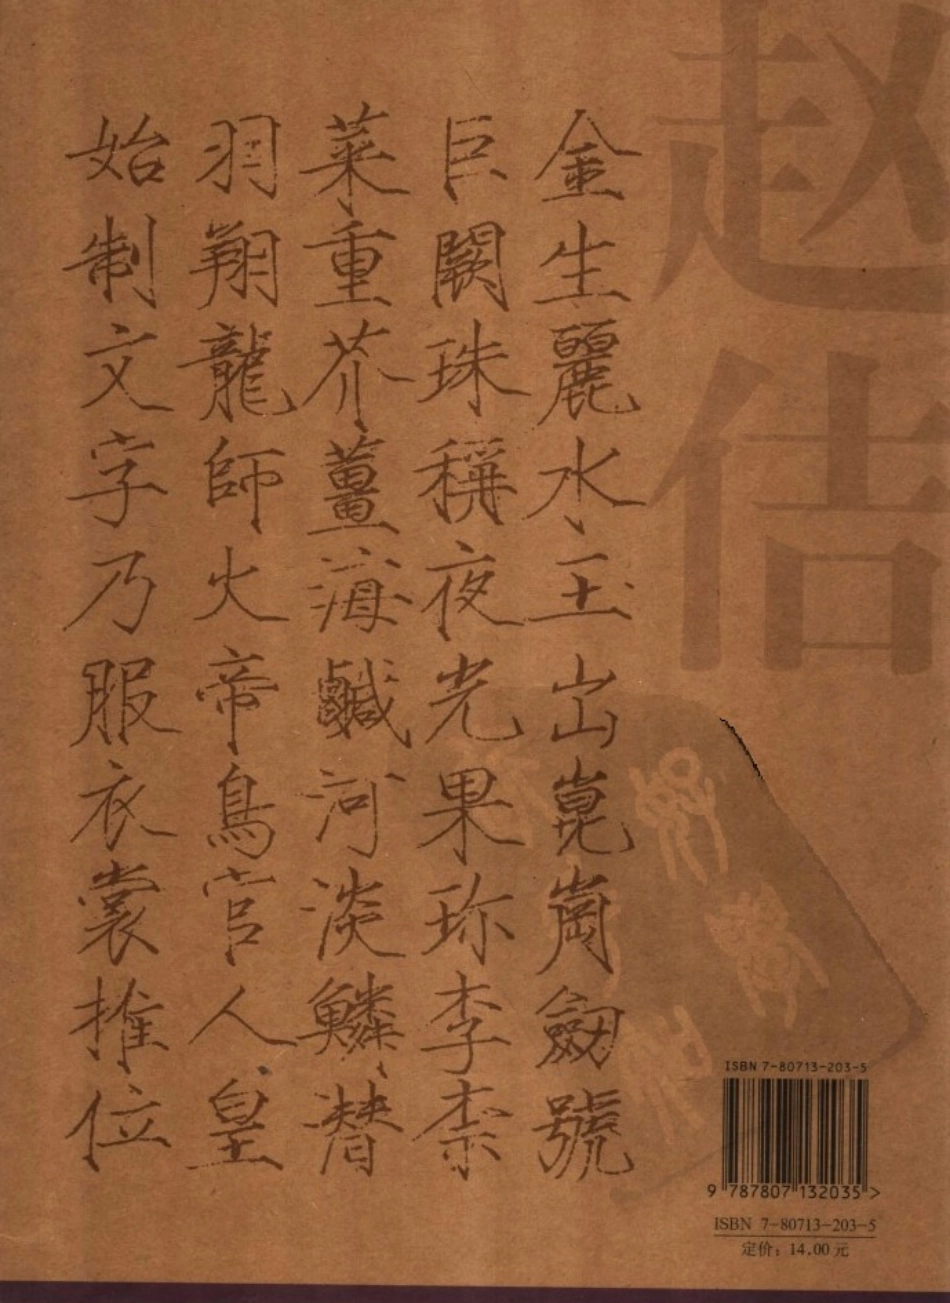 赵佶
金生麗水玉出崑崗劔號
巨闕珠稱夜光果珎李柰
菜重芥薑海鹹河淡鱗潛
羽翔龍師火帝鳥官人皇
始制文字乃服衣裳推位
ISBN 7-80713-203-5
9 787807 132035 >
ISBN 7-80713-203-5
定价：14.00 元